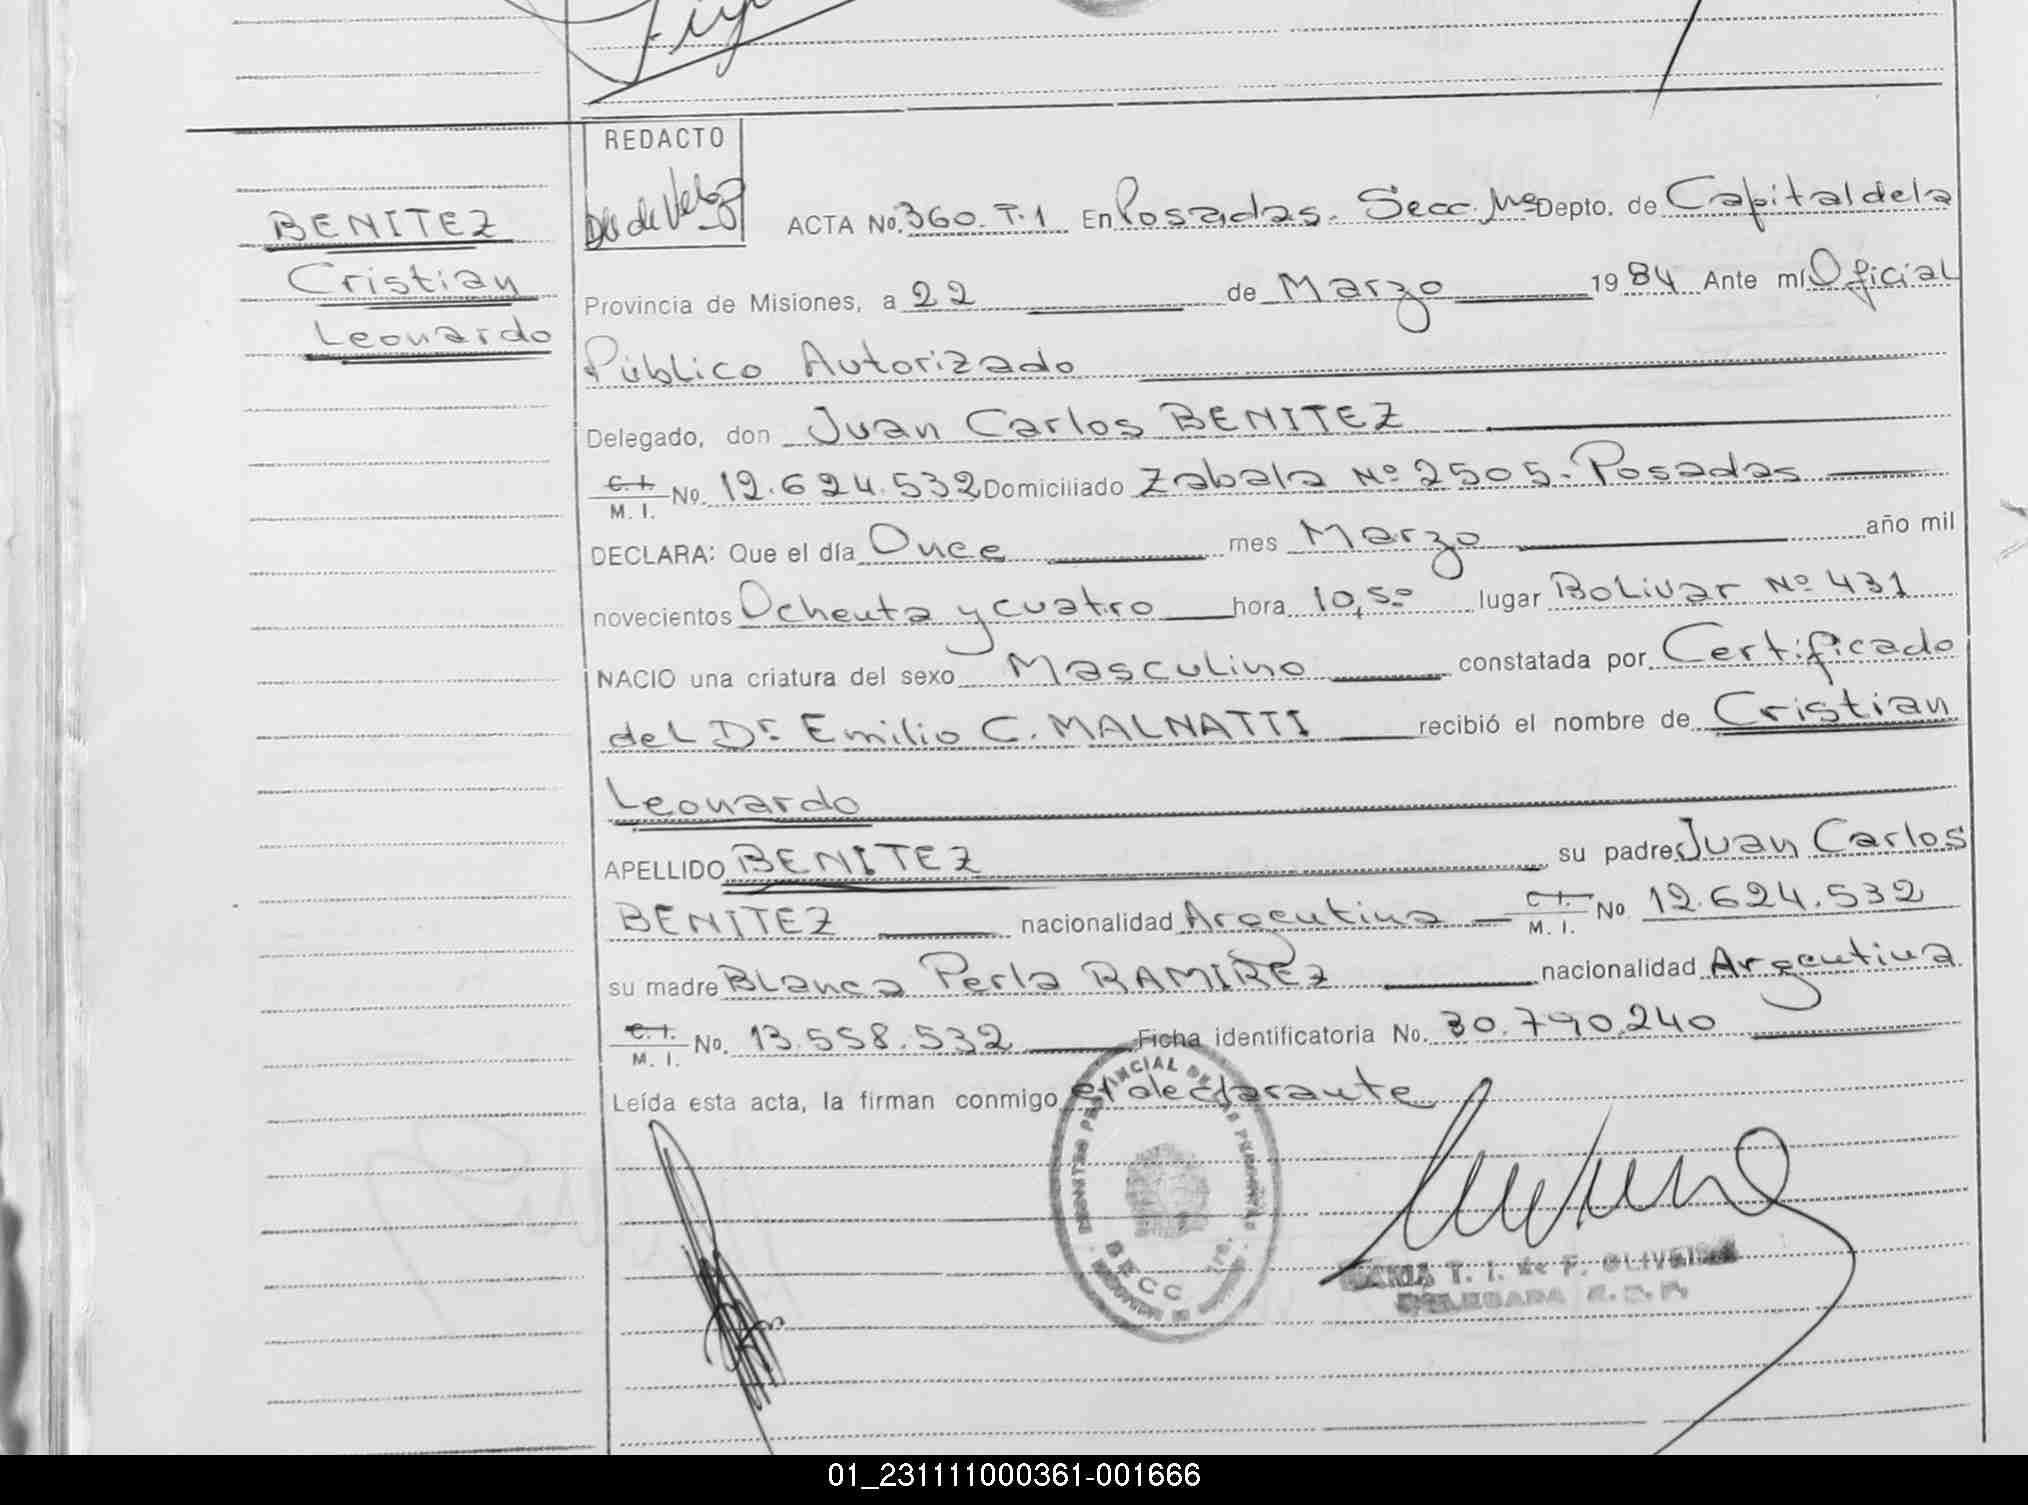 REDACTO
BENITEZ
Cristian
Leonardo
ACTA No. 360. T. 1 En Posadas. Secc. Mc Depto. de Capital de la
Provincia de Misiones, a 22 de Marzo 1984 Ante mí Oficial
Público Autorizado
Delegado, don Juan Carlos BENITEZ
C. I.
M. I. No. 12.624.532 Domiciliado Zabala Nº 2505.- Posadas
DECLARA: Que el día Once mes Marzo año mil
novecientos Ochenta y cuatro hora 10,50 lugar Bolivar Nº 431
NACIO una criatura del sexo Masculino constatada por Certificado
del Dr. Emilio C. MALNATTI recibió el nombre de Cristian
Leonardo
APELLIDO BENITEZ su padre Juan Carlos
BENITEZ nacionalidad Argentina C. I.
M. I. No 12.624.532
su madre Blanca Perla RAMIREZ nacionalidad Argentina
C. I.
M. I. No. 13.558.532 Ficha identificatoria No. 30.790.240
Leída esta acta, la firman conmigo el declarante
T. I. de F. OLIVEIRA
DELEGADA
01_231111000361-001666